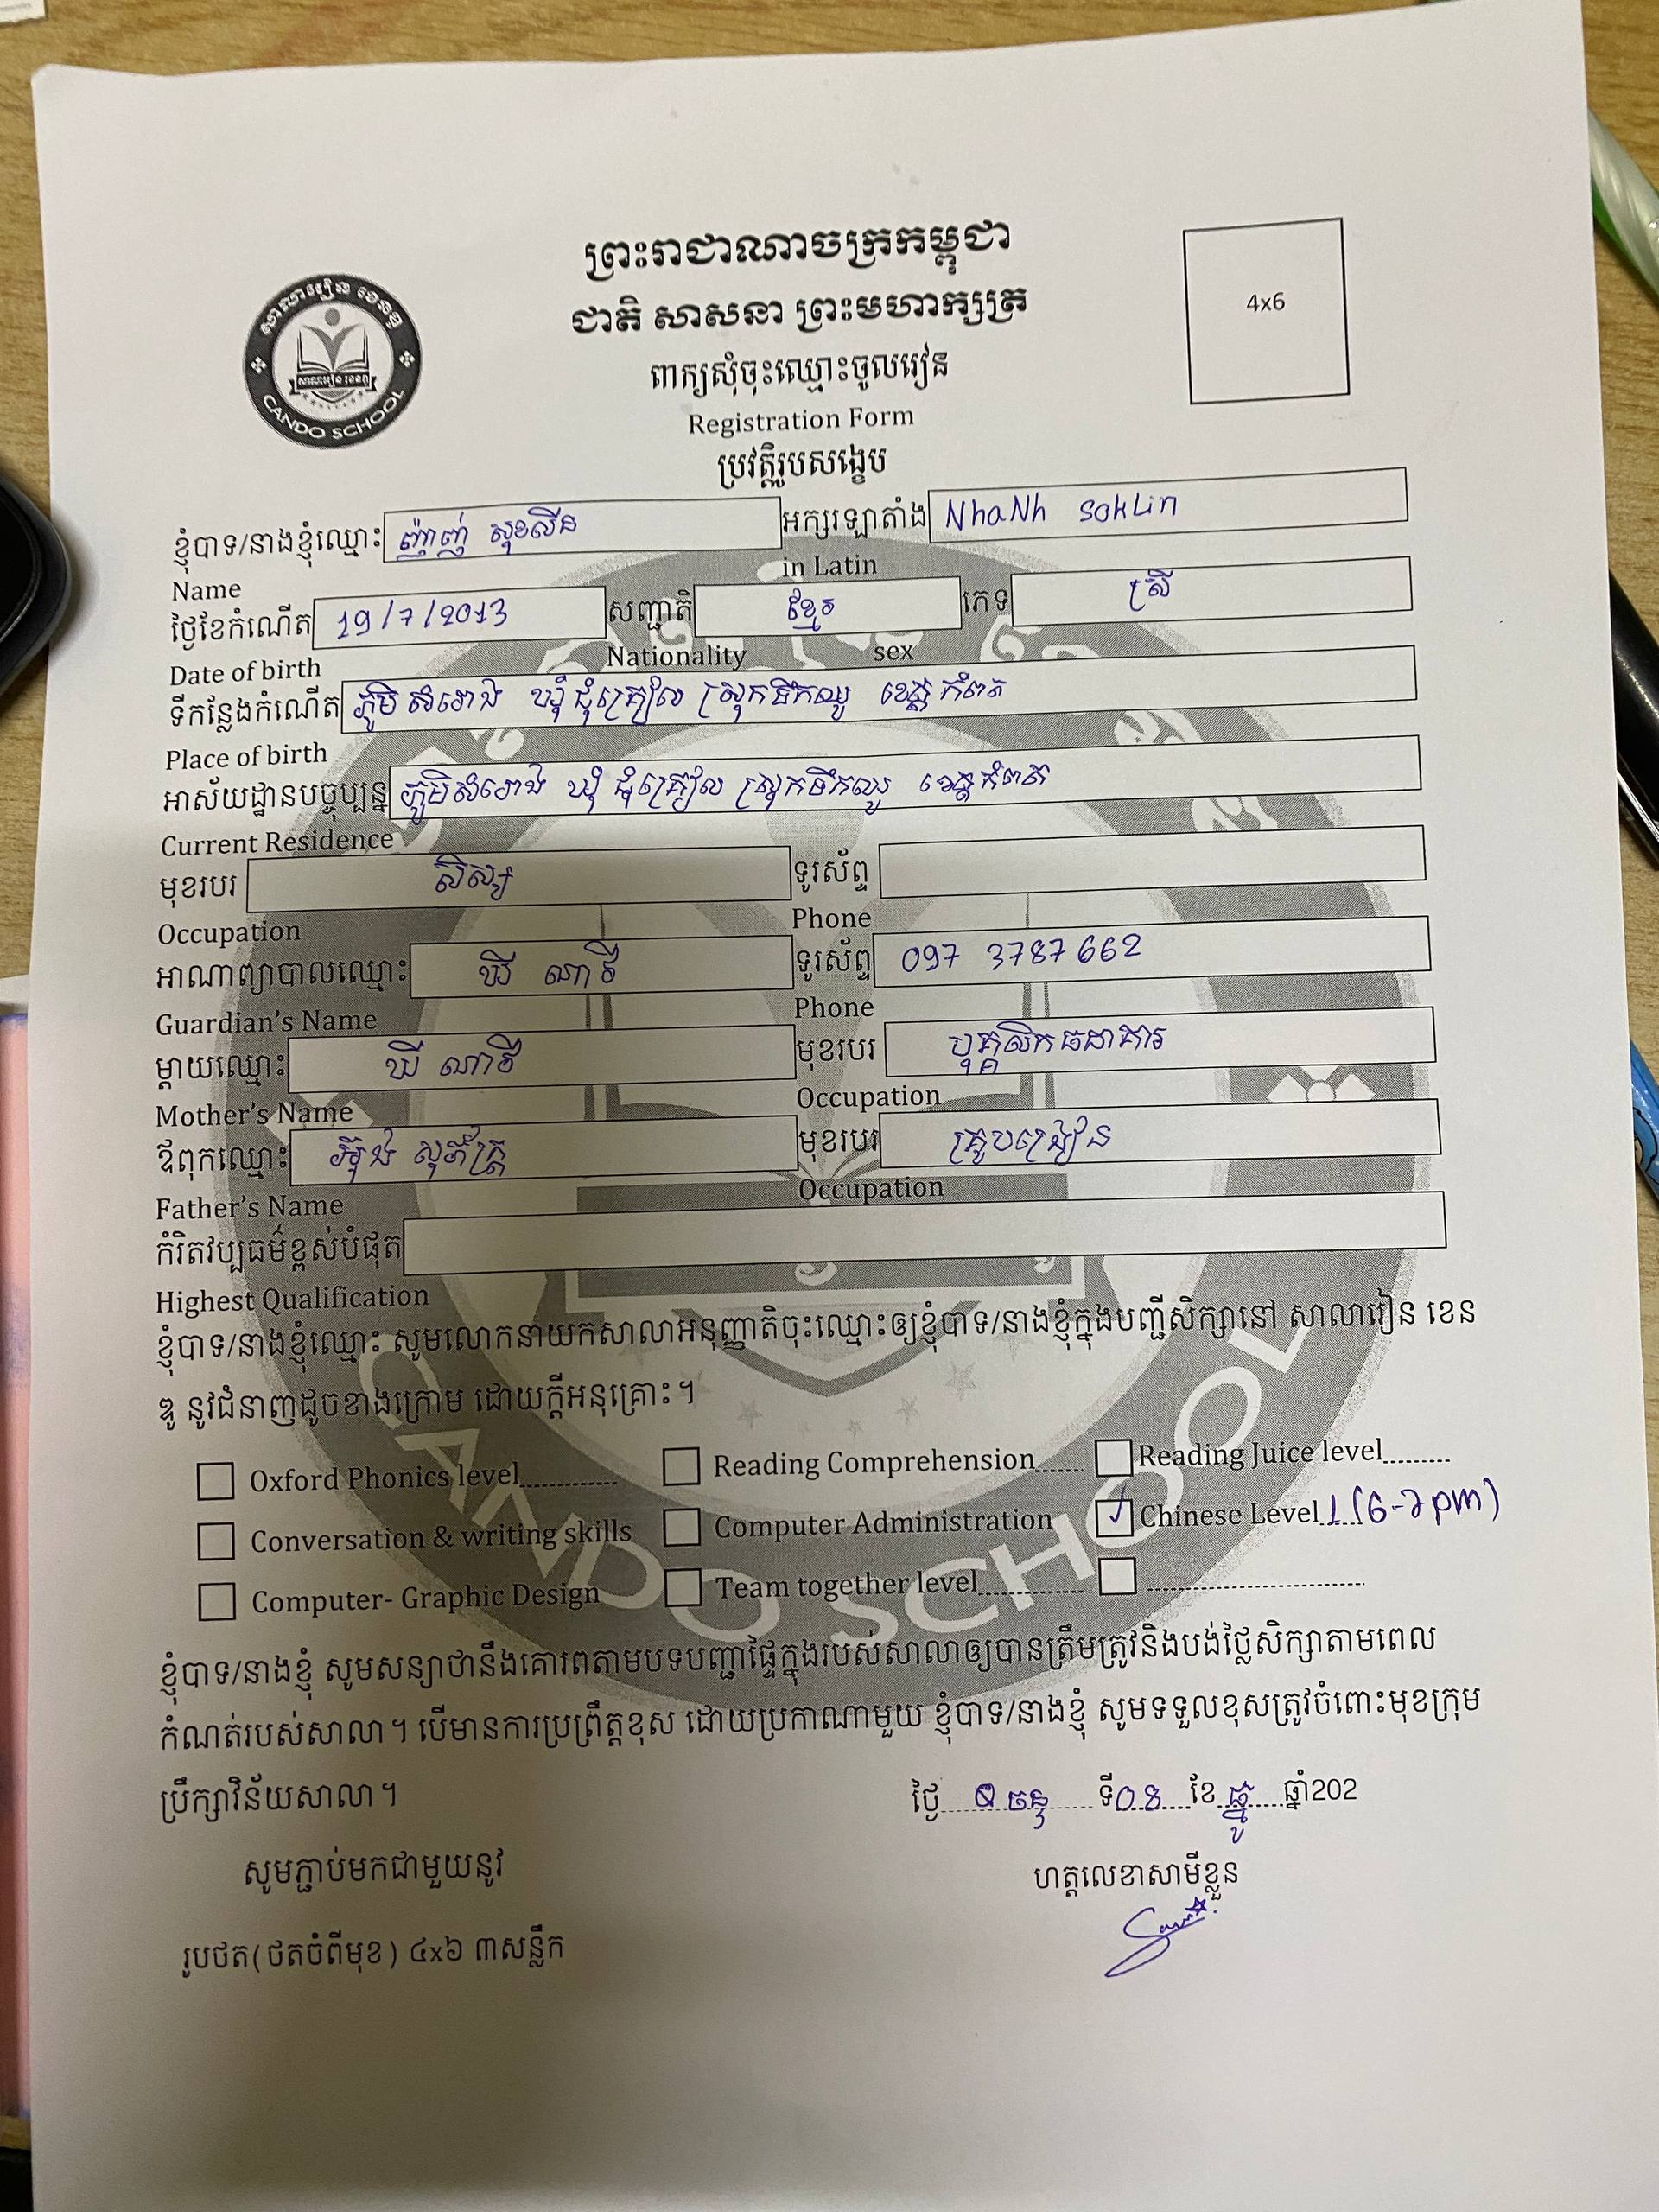 ព្រះរាជាណាចក្រកម្ពុជា
ជាតិ សាសនា ព្រះមហាក្សត្រ
4x6
សាលារៀន ខេនឌូ
CANDO SCHOOL
ពាក្យសុំចុះឈ្មោះចូលរៀន
Registration Form
ប្រវត្តិរូបសង្ខេប
ខ្ញុំបាទ/នាងខ្ញុំឈ្មោះ ញ៉ាញ់ សុខលីន អក្សរឡាតាំង NhaNh sokLin
Name in Latin
ថ្ងៃខែកំណើត 19/7/2013 សញ្ជាតិ ខ្មែរ ភេទ ស្រី
Date of birth Nationality sex
ទីកន្លែងកំណើត ភូមិសំរោង ឃុំជុំគ្រៀល ស្រុកទឹកឈូ ខេត្តកំពត
Place of birth
អាស័យដ្ឋានបច្ចុប្បន្ន ភូមិសំរោង ឃុំ ជុំគ្រៀល ស្រុកទឹកឈូ ខេត្តកំពត
Current Residence
មុខរបរ សិស្ស ទូរស័ព្ទ
Occupation Phone
អាណាព្យាបាលឈ្មោះ ឃី ណាវី ទូរស័ព្ទ 097 3787 662
Guardian's Name Phone
ម្តាយឈ្មោះ ឃី ណាវី មុខរបរ បុគ្គលិកធនាគារ
Mother's Name Occupation
ឪពុកឈ្មោះ មុខរបរ គ្រូបង្រៀន
Father's Name Occupation
កំរិតវប្បធម៌ខ្ពស់បំផុត
Highest Qualification
ខ្ញុំបាទ/នាងខ្ញុំឈ្មោះ សូមលោកនាយកសាលាអនុញ្ញាតិចុះឈ្មោះឲ្យខ្ញុំបាទ/នាងខ្ញុំក្នុងបញ្ជីសិក្សានៅ សាលារៀន ខេន
ឌូ នូវជំនាញដូចខាងក្រោម ដោយក្តីអនុគ្រោះ។
Oxford Phonics level.............. Reading Comprehension....... Reading Juice level..........
Conversation & writing skills Computer Administration ✓ Chinese Level 1 (6-7pm)
Computer- Graphic Design Team together level................ ................................
ខ្ញុំបាទ/នាងខ្ញុំ សូមសន្យាថានឹងគោរពតាមបទបញ្ជាផ្ទៃក្នុងរបស់សាលាឲ្យបានត្រឹមត្រូវនិងបង់ថ្លៃសិក្សាតាមពេល
កំណត់របស់សាលា។ បើមានការប្រព្រឹត្តខុស ដោយប្រកាណាមួយ ខ្ញុំបាទ/នាងខ្ញុំ សូមទទួលខុសត្រូវចំពោះមុខក្រុម
ប្រឹក្សាវិន័យសាលា។
ថ្ងៃ ចន្ទ ទី 08 ខែ ធ្នូ ឆ្នាំ202
សូមភ្ជាប់មកជាមួយនូវ
ហត្ថលេខាសាមីខ្លួន
រូបថត(ថតចំពីមុខ) ៤x៦ ៣សន្លឹក